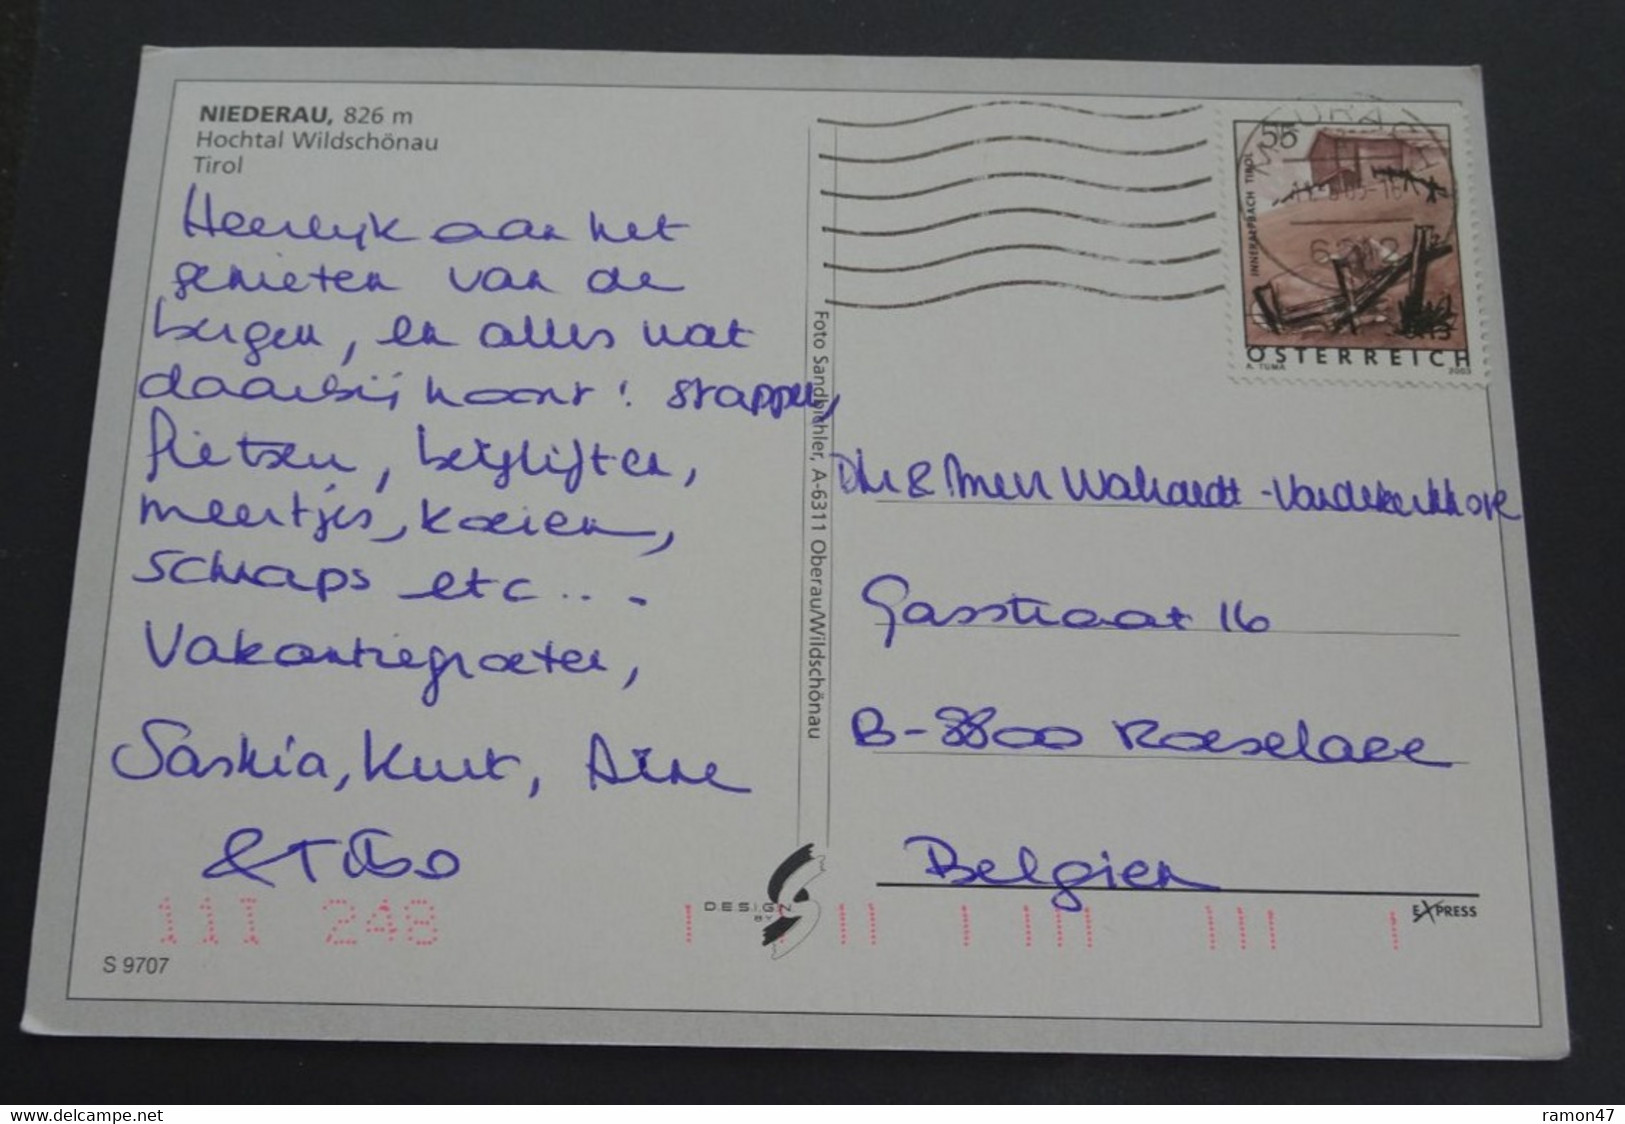 NIEDERAU, 826 m
Hochtal Wildschönau
Tirol
Heerlijk aan het
genieten van de
bergen, en alles wat
daarbij hoort! stappen,
fietsen, berglijften,
meertjes, koeien,
schnaps etc...
Vakantiegroeten,
Saskia, Kurt, Aïne
&
S 9707
Foto Sandbichler, A-6311 Oberau/Wildschönau
DESIGN
BY
11I 248
MAURACH
6212
55
INNERALPBACH TIROL
ÖSTERREICH
A. TUMA
2003
Dhr & Mevr -Vandekerkhove
Gasstraat 16
B-8800 Roeselare
Belgien
EXPRESS
www.delcampe.net
ramon47